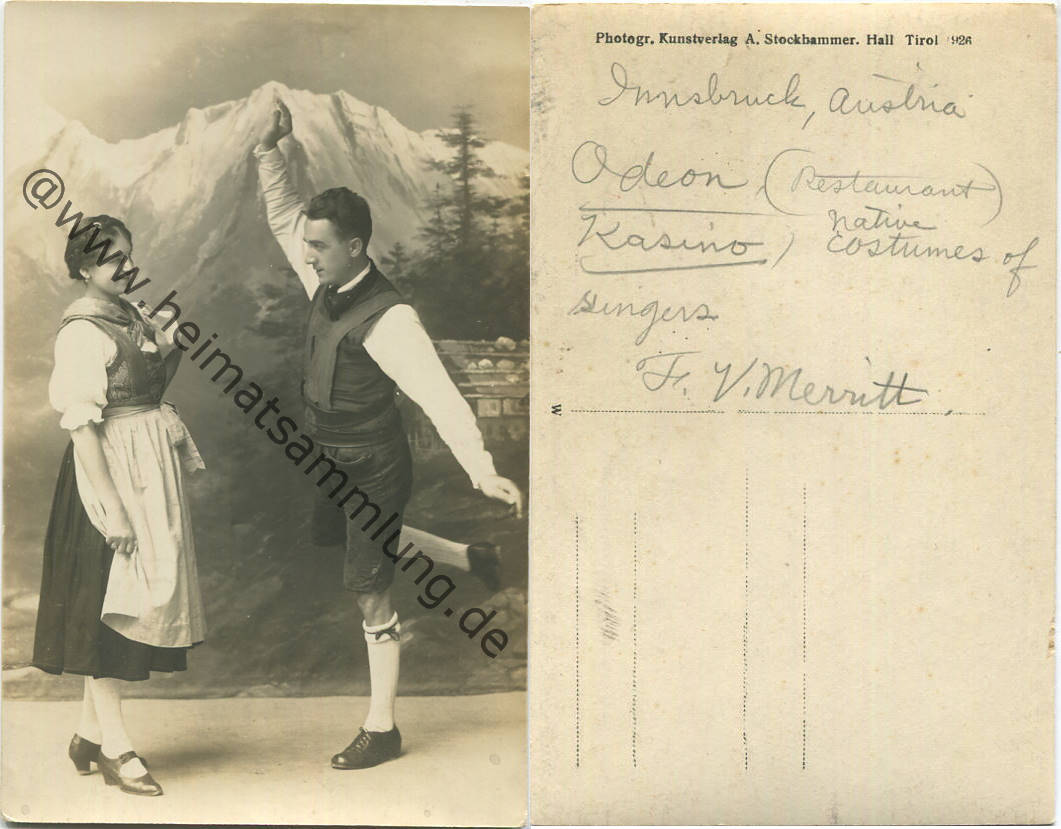 @www.heimatsammlung.de
Photogr. Kunstverlag A. Stockhammer. Hall Tirol 1926
Innsbruck, Austria
Odeon, (Restaurant)
Kasino, native
costumes of
singers
F. V. Merritt
W